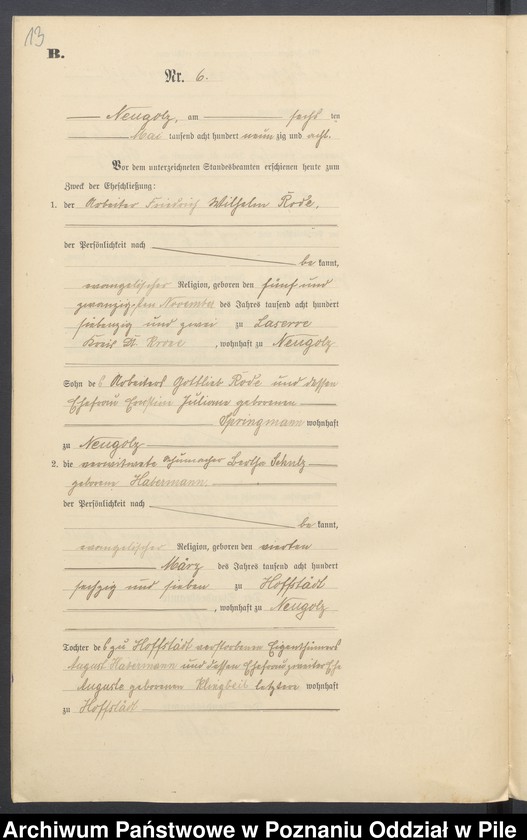 13
B.
Nr. 6.
Neugolz, am sechs ten
Mai tausend acht hundert neun zig und acht.
Vor dem unterzeichneten Standesbeamten erschienen heute zum
Zweck der Eheschließung:
1. der Arbeiter Friedrich Wilhelm Rode,
der Persönlichkeit nach
be kannt,
evangelischer Religion, geboren den fünf und
zwanzigsten November des Jahres tausend acht hundert
siebenzig und zwei zu
Kreis Dt. Krone, wohnhaft zu Neugolz
Sohn des Arbeiters Gottlieb Rode und dessen
Ehefrau Ernstine Juliane geborenen
Springmann wohnhaft
zu Neugolz
2. die verwittwete Schumacher Bertha Schulz
geborene Habermann
der Persönlichkeit nach
be kannt,
evangelischer Religion, geboren den vierten
März des Jahres tausend acht hundert
sechzig und sieben zu Hoffstädt
, wohnhaft zu Neugolz
Tochter des zu Hoffstädt verstorbenen Eigenthümers
August Habermann und dessen Ehefrau zweiter Ehe
Auguste geborenen Klingbeil letztere wohnhaft
zu Hoffstädt
Archiwum Państwowe w Poznaniu Oddział w Pile